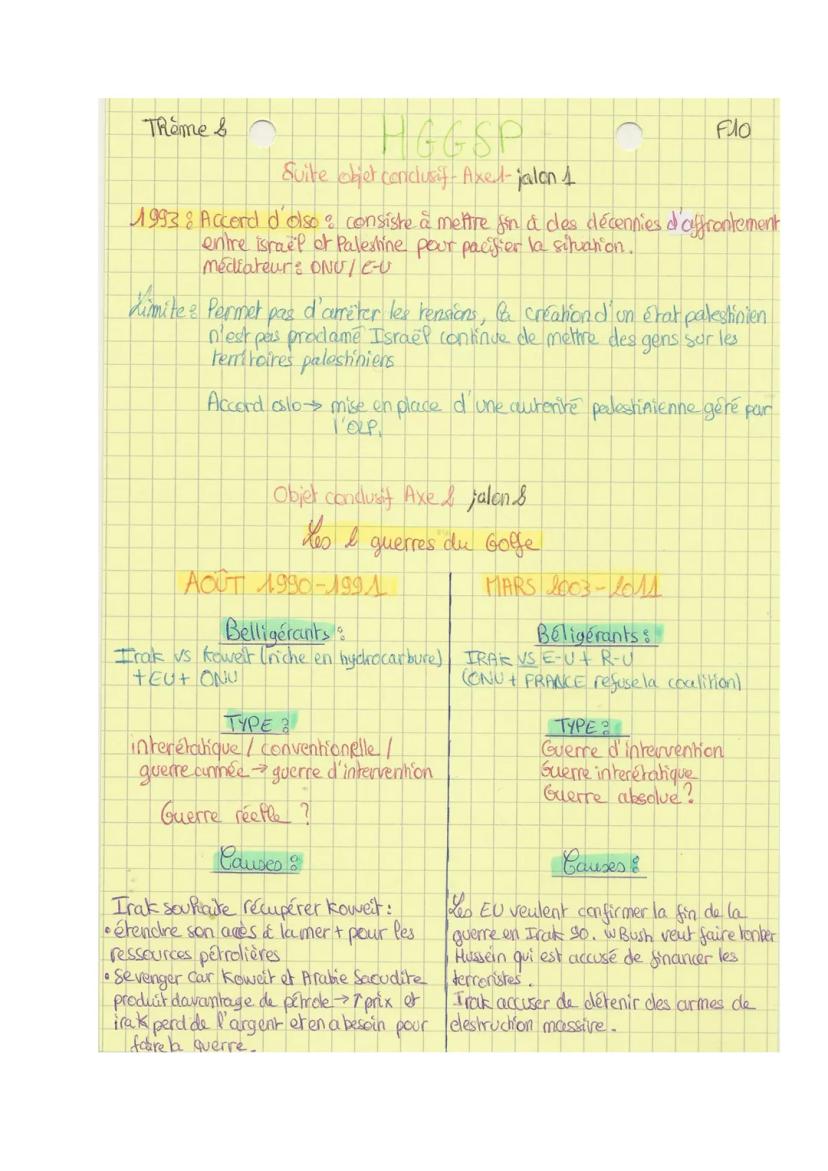 Thème 2
HGGSP
F10
Suite objet conclusif - Axe 1 - jalon 1
1993 : Accord d'olso : consiste à mettre fin à des décennies d'affrontement
entre israël et Palestine pour pacifier la situation.
médiateur : ONU / E-U
Limite : Permet pas d'arrêter les tensions, la création d'un état palestinien
n'est pas proclamé Israël continue de mettre des gens sur les
territoires palestiniens
Accord oslo → mise en place d'une autorité palestinienne géré par
l'OLP.
Objet conclusif Axe 2 jalon 2
Les 2 guerres du Golfe
AOÛT 1990-1991
Belligérants :
Irak vs Koweït (riche en hydrocarbure)
+ EU + ONU
TYPE :
interétatique / conventionelle /
guerre année → guerre d'intervention
Guerre réelle ?
Causes :
Irak souhaite récupérer Koweït :
• étendre son accès à la mer + pour les
ressources pétrolières
• Se venger car Koweit et Arabie Saoudite
produit davantage de pétrole → ↑ prix et
irak perd de l'argent et en a besoin pour
faire la guerre.
MARS 2003-2011
Béligérants :
IRAK VS E-U + R-U
(ONU + FRANCE refuse la coalition)
TYPE :
Guerre d'intervention
Guerre interétatique
Guerre absolue ?
Causes :
Les EU veulent confirmer la fin de la
guerre en Irak 90. W Bush veut faire tomber
Hussein qui est accusé de financer les
terroristes.
Irak accuser de détenir des armes de
destruction massive.